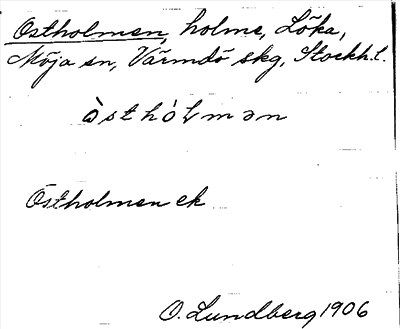 Östholmen, holme, Löka,
Möja sn, Värmdö skg, Stockh.l.
òsthólmən
Östholmen ek
O. Lundberg 1906